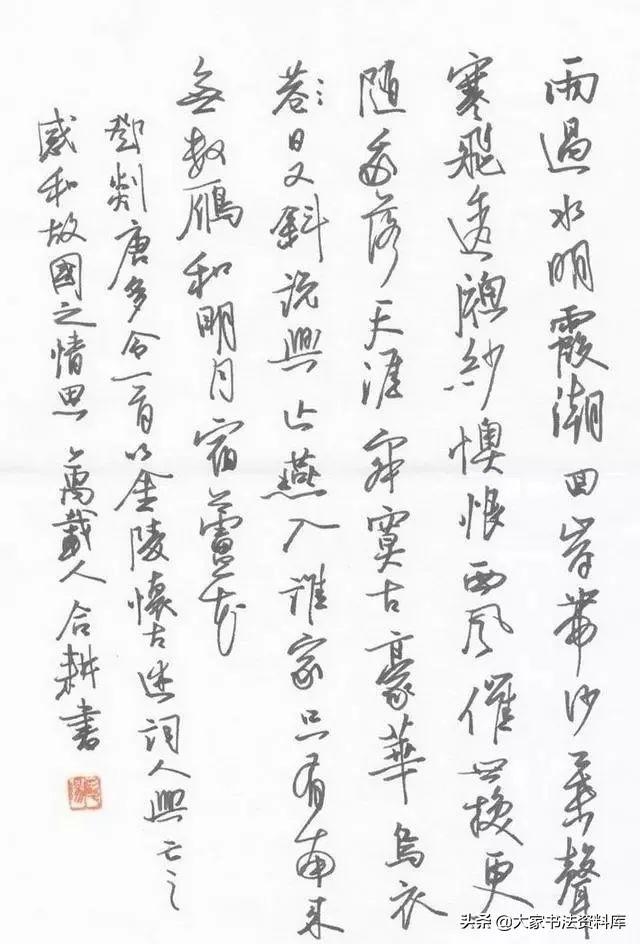 雨過水明霞潮回岸帶沙葉聲
寒飛透牕紗懊恨西風催世換更
隨我落天涯寂寞古豪華烏衣
巷日又斜說興亡燕入誰家只有南來
無數鴈和明月宿蘆花
鄧剡唐多令一首以金陵懷古述詞人興亡之
感和故國之情思 萬載人合耕書
头条 @大家书法资料库